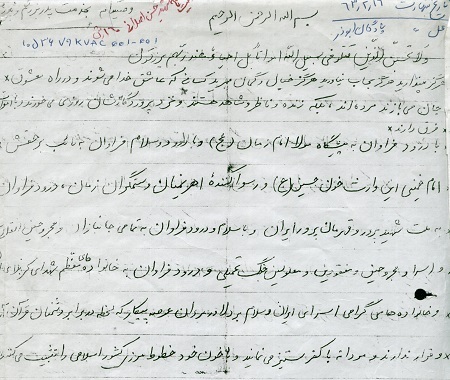 تاریخ شهادت ۶۳،۲،۱۶
پادگان ابوذر
بسم الله الرحمن الرحیم
۱۰۵۲۶۷۹KVAC۰۰۱-۰۰۱
ولا تحسبن الذین قتلوا فی سبیل الله امواتا بل احیاء عند ربهم یرزقون
هرگز مپندارید هرگز بحساب نیاورید هرگز خیال و گمان مبرید کسانی که عاشق خدا می‌شوند و در راه عشق
جان می‌بازند مرده‌اند، بلکه زنده و ناظر و شاهد هستند و نزد پروردگارشان روزی می‌خورند
فرق دارند
با درود فراوان به پیشگاه مولا امام زمان (عج) و با درود و سلام فراوان به نائب برحقش
امام خمینی این وارث خون حسین (ع) و رسوا کننده اهریمنان و ستمگران زمان، درود فراوان
به ملت شهید پرور و قهرمان پرور ایران و با سلام و درود فراوان به تمامی جانبازان و مجروحین انقلاب
و اسرا و مجروحین و مفقودین و معلولین جنگ تحمیلی و با درود فراوان به خانواده های معظم شهدای کربلای
و خانواده های گرامی اسرای ایران و سلام بر دلاور مردان عرصه پیکار که لحظه در برابر دشمنان قرآن
و قرار ندارند و مردانه با کفر ستیز می نمایند و با خون خود خطوط مرزی کشور اسلامی را تثبیت می کنند